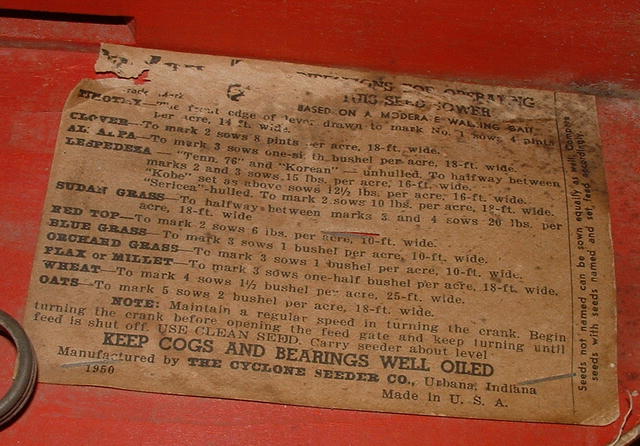 DIRECTIONS FOR OPERATING
THIS SEED SOWER
Trade Mark
BASED ON A MODERATE WALKING GAIT
TIMOTHY—The front edge of lever drawn to mark No. 1 sows 4 pints
per acre, 14 ft. wide.
CLOVER—To mark 2 sows 8 pints per acre, 18-ft. wide.
ALFALFA—To mark 3 sows one-sixth bushel per acre, 18-ft. wide.
LESPEDEZA—"Tenn. 76" and "Korean" — unhulled. To halfway between
marks 2 and 3 sows 15 lbs. per acre, 16-ft. wide.
"Kobe" set as above sows 12½ lbs. per acre, 16-ft. wide.
"Sericea"-hulled. To mark 2 sows 10 lbs. per acre, 18-ft. wide.
SUDAN GRASS—To halfway between marks 3 and 4 sows 20 lbs. per
acre, 18-ft. wide
RED TOP—To mark 2 sows 6 lbs. per acre, 10-ft. wide.
BLUE GRASS—To mark 3 sows 1 bushel per acre, 10-ft. wide.
ORCHARD GRASS—To mark 3 sows 1 bushel per acre, 10-ft. wide.
FLAX or MILLET—To mark 3 sows one-half bushel per acre, 18-ft. wide.
WHEAT—To mark 4 sows 1½ bushel per acre, 25-ft. wide.
OATS—To mark 5 sows 2 bushel per acre, 18-ft. wide.
NOTE: Maintain a regular speed in turning the crank. Begin
turning the crank before opening the feed gate and keep turning until
feed is shut off. USE CLEAN SEED. Carry seeder about level
KEEP COGS AND BEARINGS WELL OILED
Manufactured by THE CYCLONE SEEDER CO., Urbana, Indiana
1950
Made in U. S. A.
Seeds not named can be sown equally as well. Compare
seeds with seeds named and set feed accordingly.